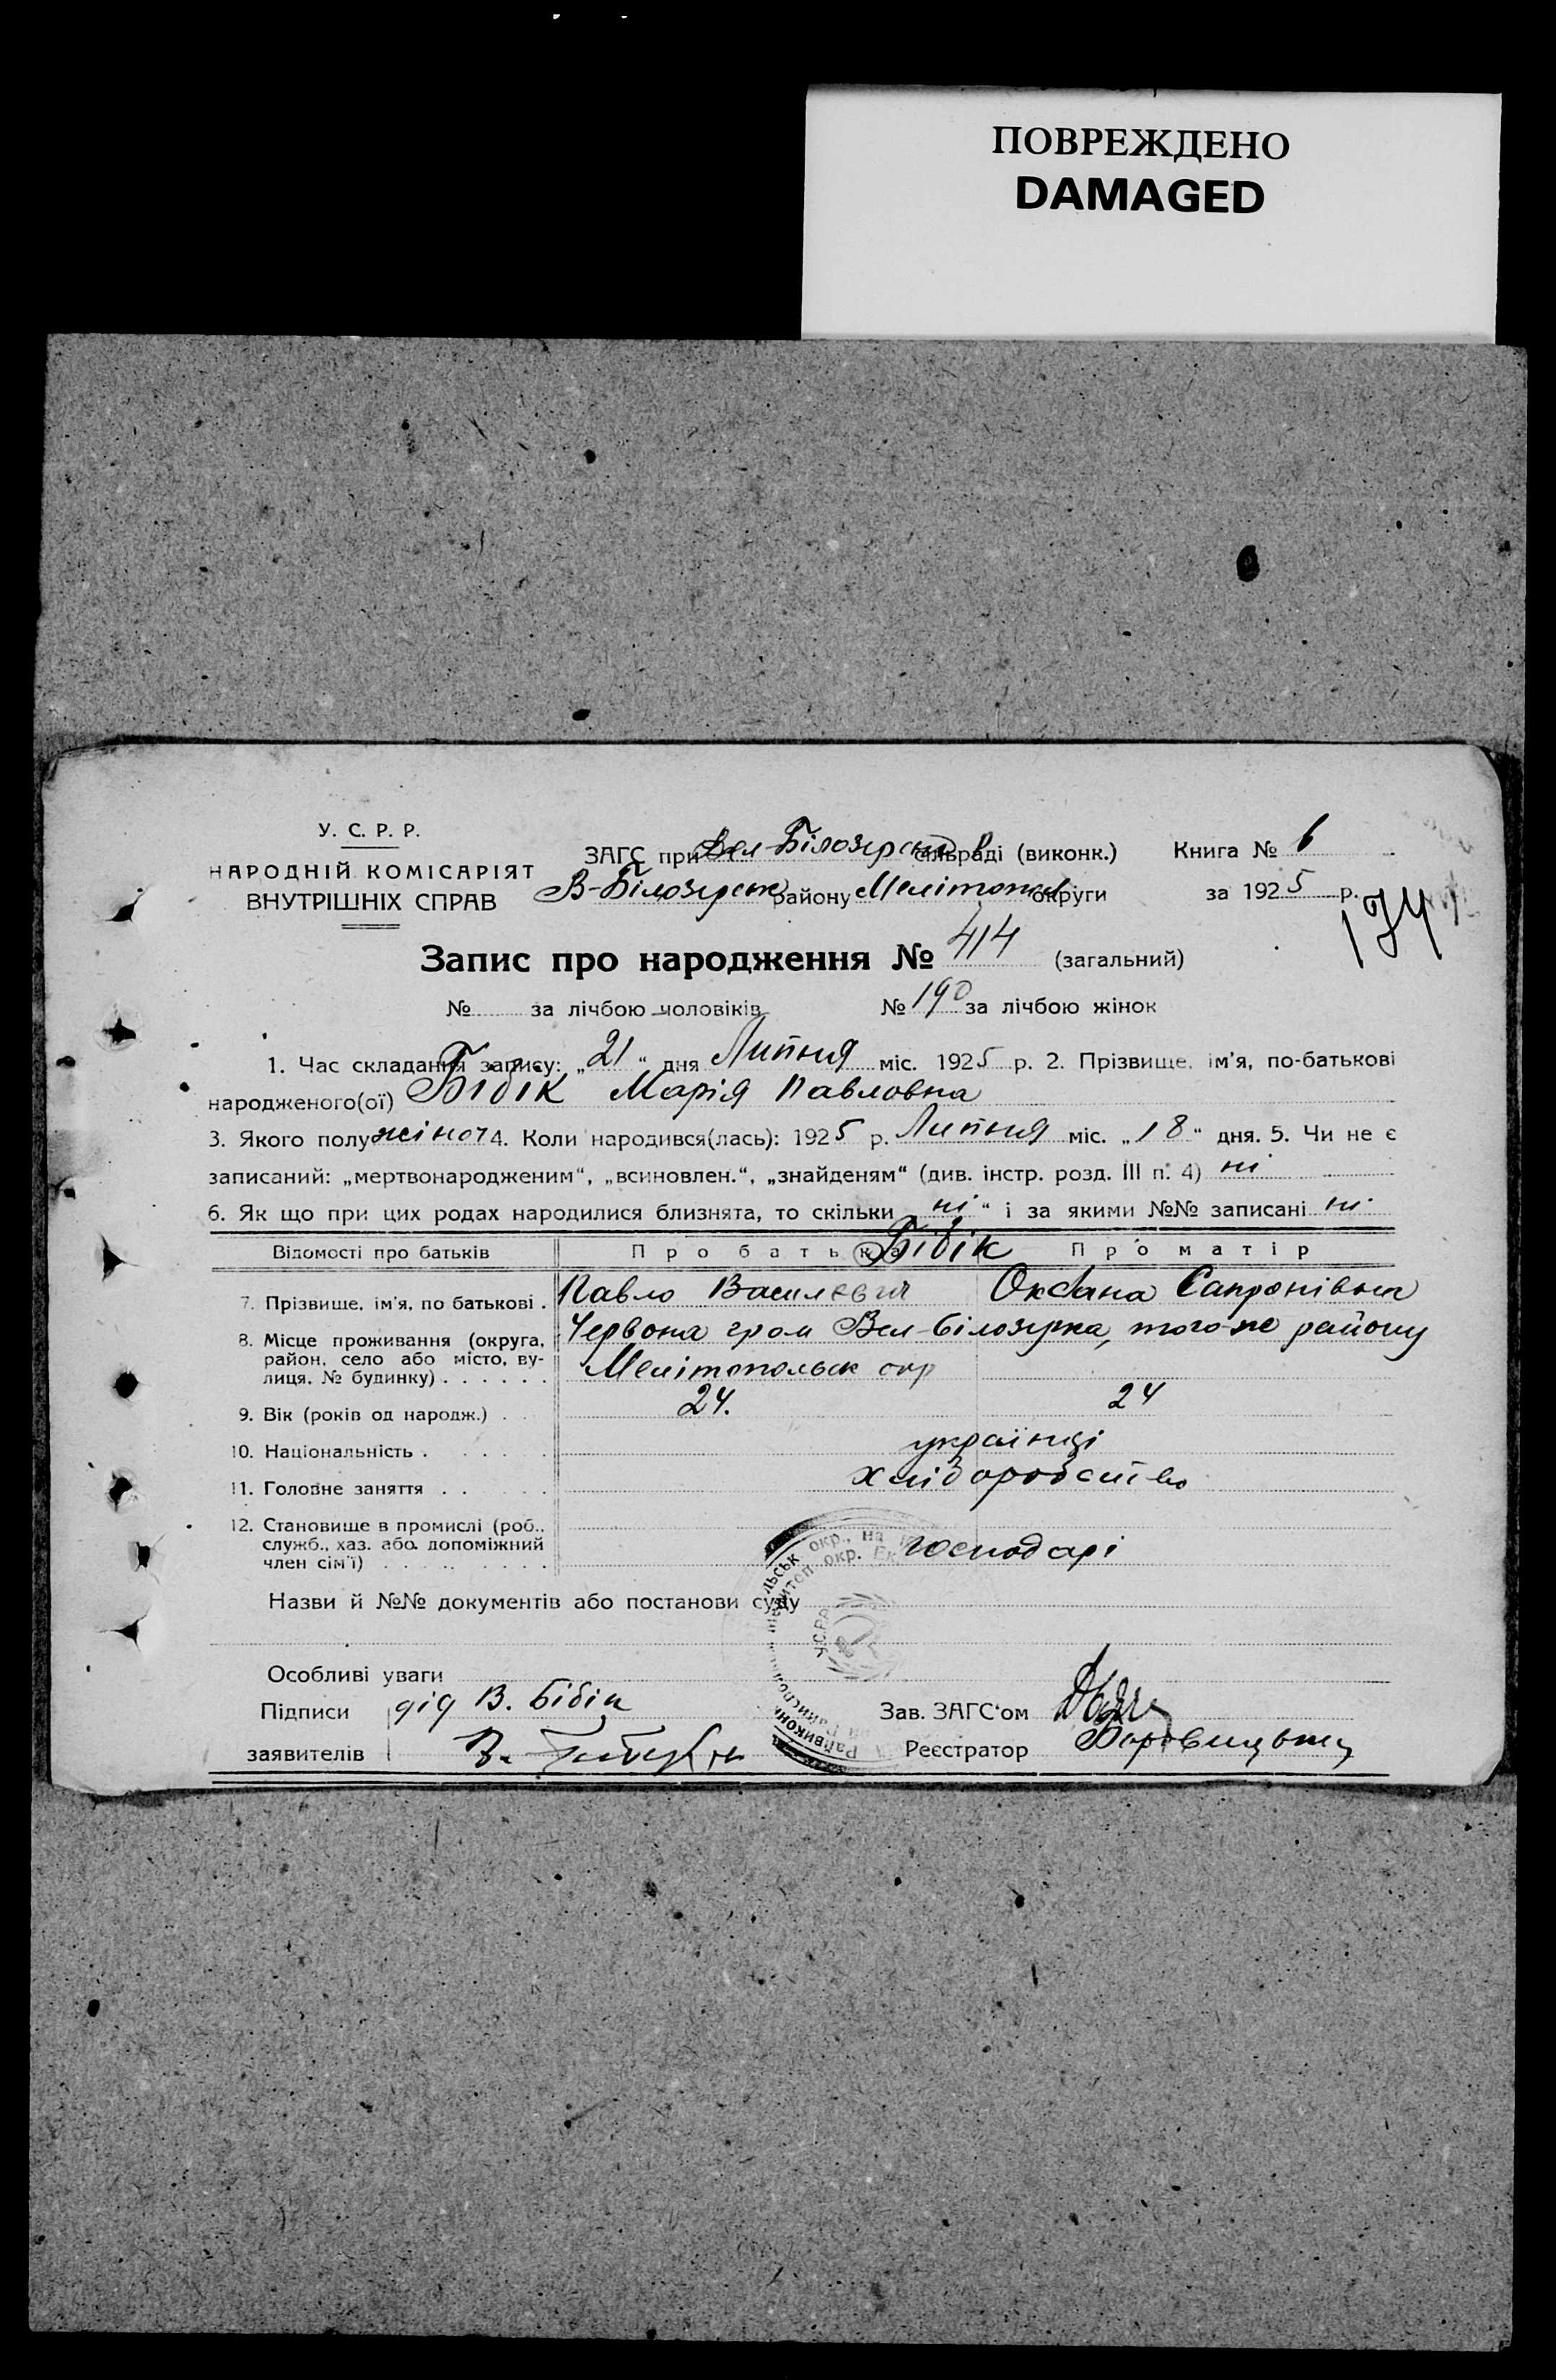 ПОВРЕЖДЕНО
DAMAGED
У. С. Р. Р.
НАРОДНІЙ КОМІСАРІЯТ
ВНУТРІШНІХ СПРАВ
ЗАГС при Вел-Білозерськ сільраді (виконк.) Книга № 6
В-Білозерськ району Мелітопол округи за 1925 р.
174
Запис про народження № 414 (загальний)
№ за лічбою чоловіків № 190 за лічбою жінок
1. Час складання запису: „21“ дня Липня міс. 1925 р. 2. Прізвище, ім’я, по-батькові
народженого(ої) Бібік Марія Павловна
3. Якого полу жіноч 4. Коли народився(лась): 1925 р. Липня міс. „18“ дня. 5. Чи не є
записаний: „мертвонародженим“, „всиновлен.“, „знайденям“ (див. інстр. розд. III п. 4) ні
6. Як що при цих родах народилися близнята, то скільки „ні“ і за якими №№ записані ні
Відомості про батьків Про батька Про матір
Бібік
7. Прізвище, ім’я, по батькові . Павло Василевич Оксана Сапронівна
8. Місце проживання (округа, район, село або місто, вулиця, № будинку) . . . . . . Червона гром Вел-Білозерка, того-же району
Мелітопольск окр
9. Вік (років од народж.) . 24. 24
10. Національність . українці
11. Головне заняття . . хліборобство
12. Становище в промислі (роб., служб., хаз. або допоміжний член сім’ї) господарі
Назви й №№ документів або постанови суду
Особливі уваги
Підписи дід В. Бібік Зав. ЗАГС’ом
заявителів В. Реєстратор